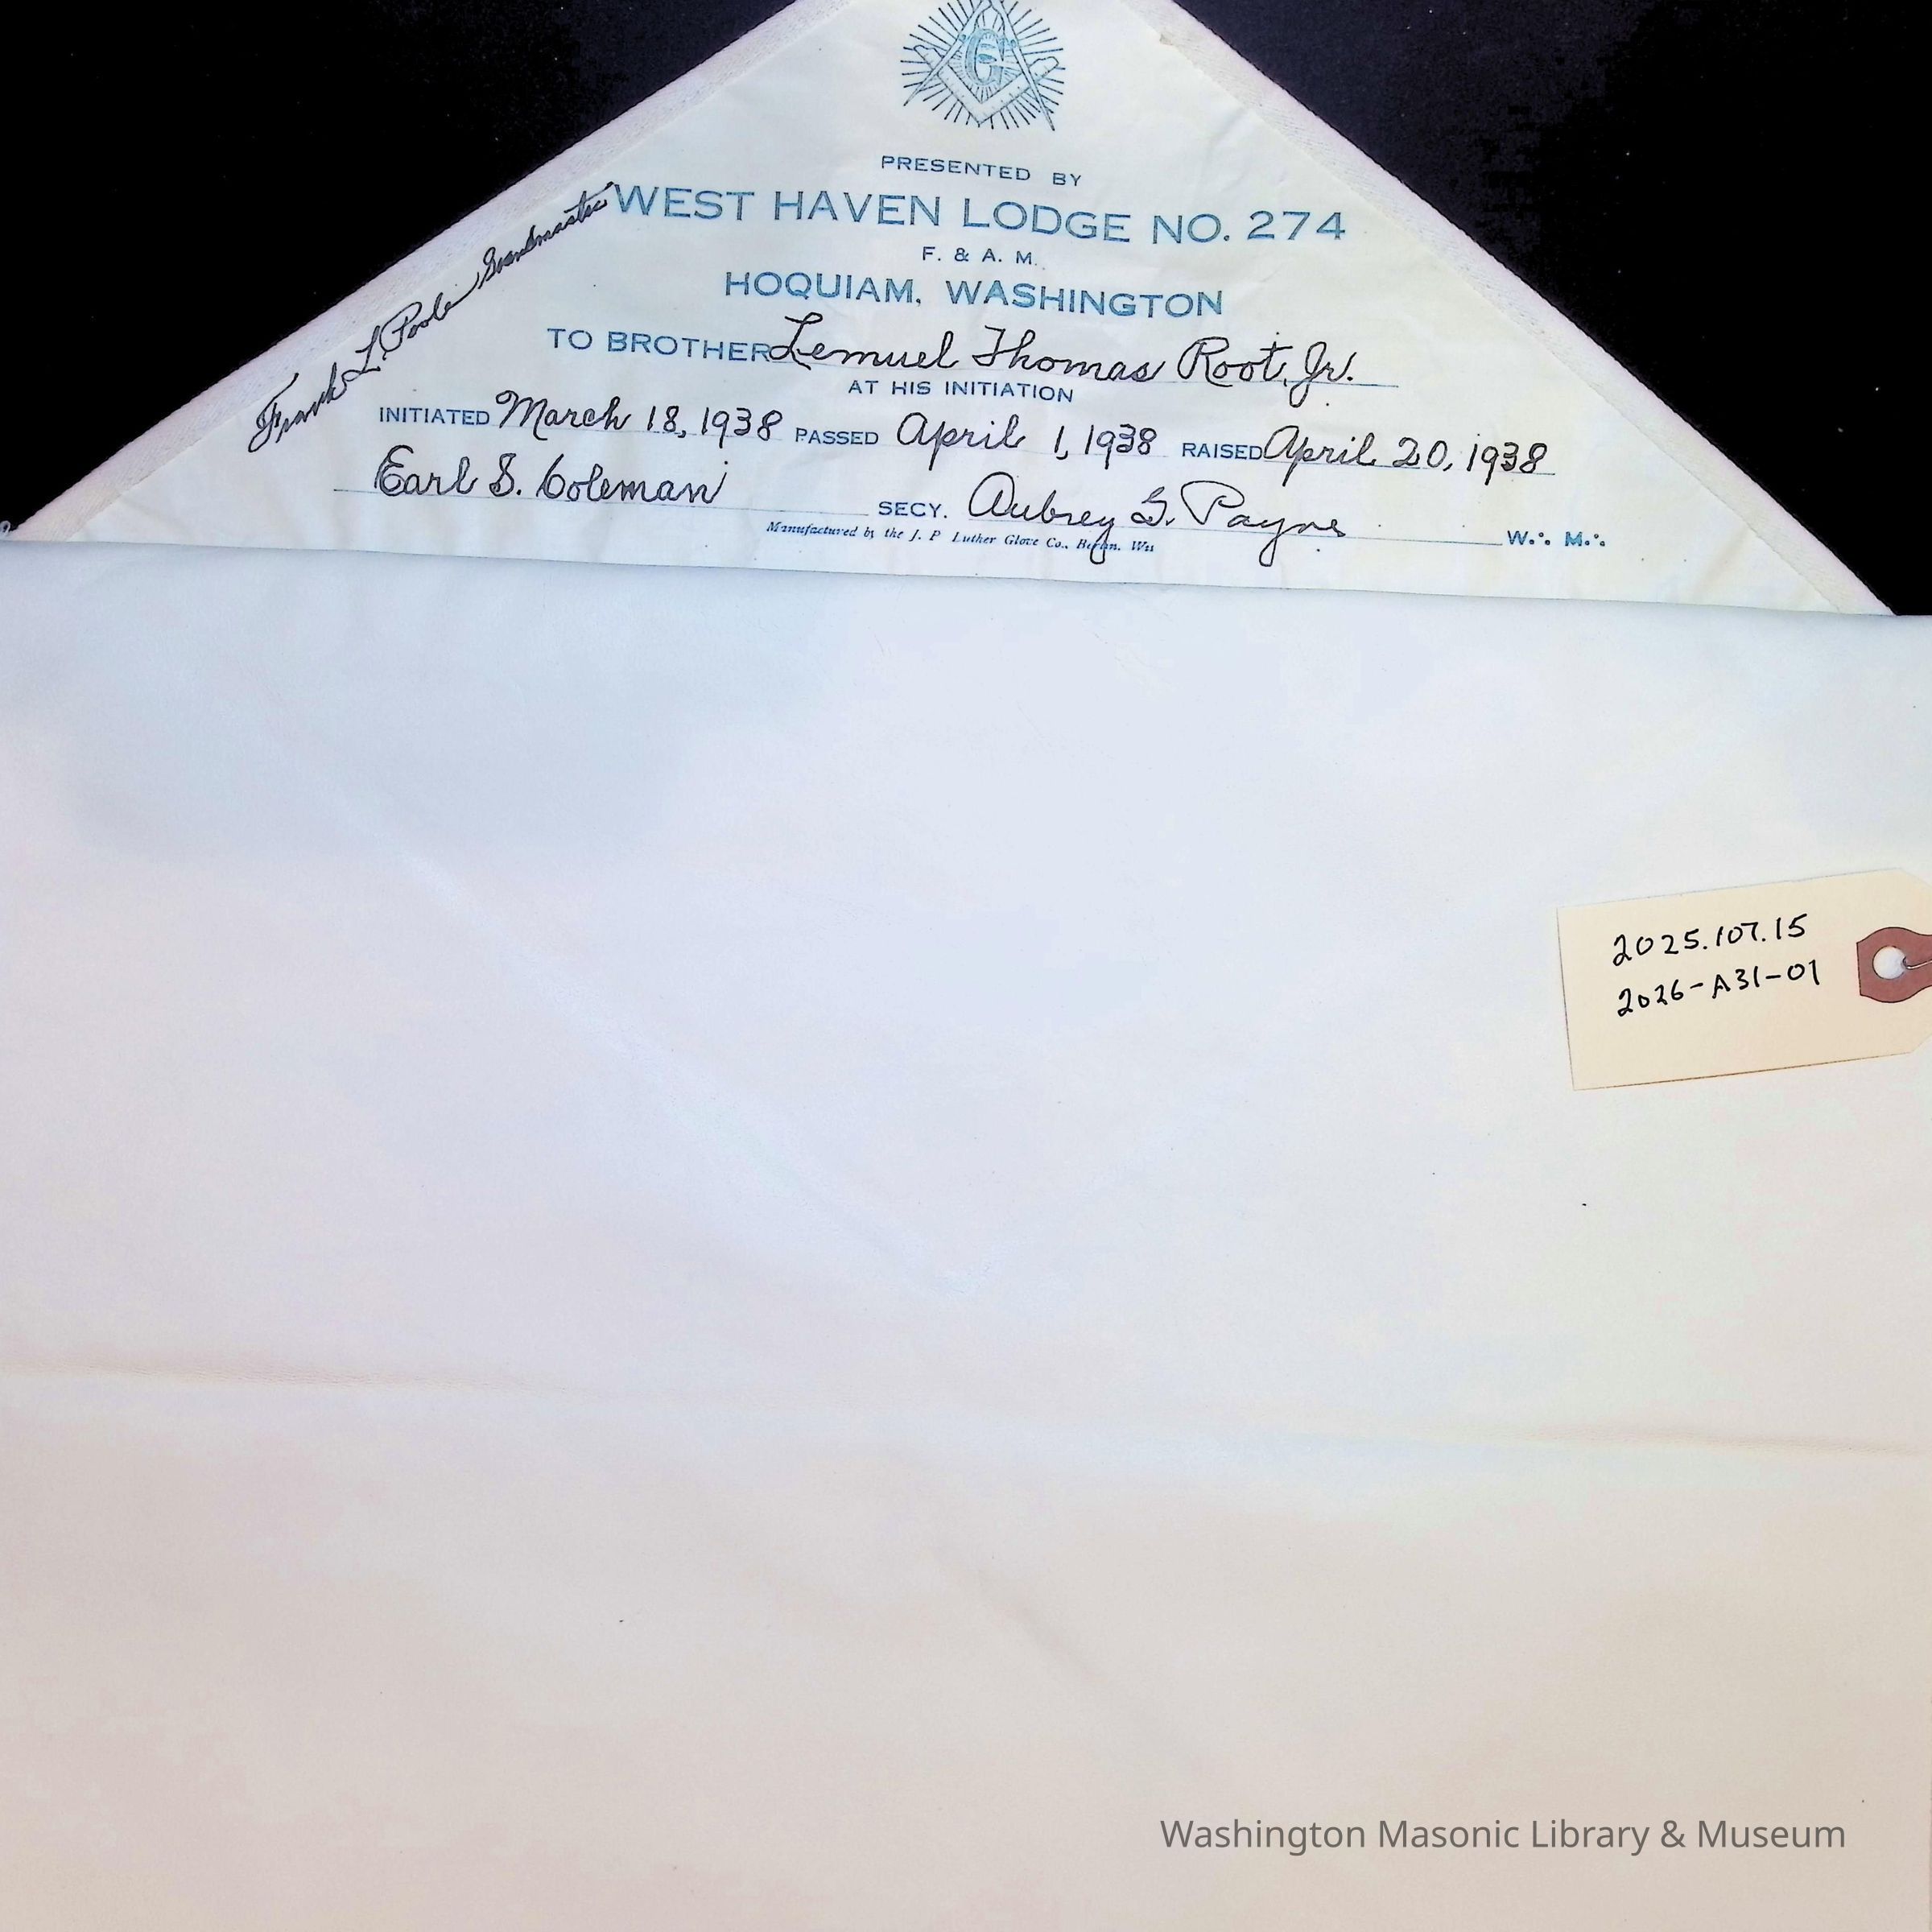 G
PRESENTED BY
WEST HAVEN LODGE NO. 274
F. & A. M.
HOQUIAM, WASHINGTON
TO BROTHER Lemuel Thomas Root, Jr.
AT HIS INITIATION
INITIATED March 18, 1938 PASSED April 1, 1938 RAISED April 20, 1938
Earl S. Coleman SECY. Aubrey G. Payne W.∴ M.∴
Manufactured by the J. P. Luther Glove Co., Berlin, Wis
Frank L. Poole Grandmaster
2025.107.15
2026-A31-01
Washington Masonic Library & Museum